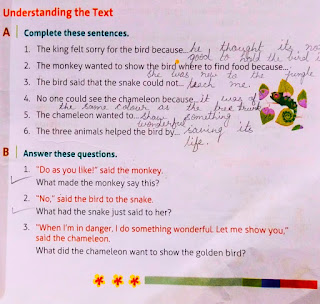 Understanding the Text
A Complete these sentences.
1. The king felt sorry for the bird because... he thought its not
good to hold the bird in
2. The monkey wanted to show the bird where to find food because...
she was new to the jungle
3. The bird said that the snake could not... teach me.
4. No one could see the chameleon because... it was of
the same colour as the tree trunk
5. The chameleon wanted to... show something
wonderful
6. The three animals helped the bird by... saving its
life.
B Answer these questions.
1. "Do as you like!" said the monkey.
What made the monkey say this?
2. "No," said the bird to the snake.
What had the snake just said to her?
3. "When I'm in danger, I do something wonderful. Let me show you,"
said the chameleon.
What did the chameleon want to show the golden bird?